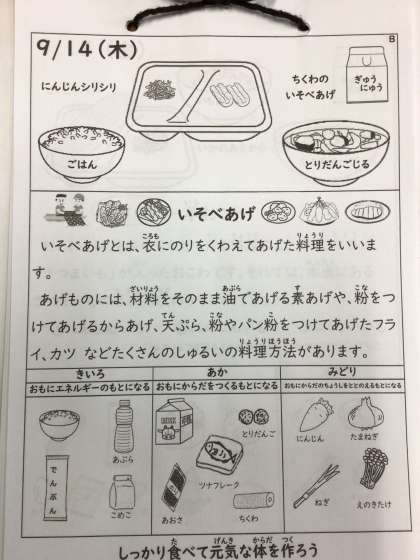 9/14(木)
B
にんじんシリシリ
ちくわの
いそべあげ
ぎゅう
にゅう
ごはん
とりだんごじる
いそべあげ
いそべあげとは、衣にのりをくわえてあげた料理をいいま
す。
あげものには、材料をそのまま油であげる素あげや、粉をつ
けてあげるからあげ、天ぷら、粉やパン粉をつけてあげたフラ
イ、カツ などたくさんのしゅるいの料理方法があります。
きいろ あか みどり
おもにエネルギーのもとになる おもにからだをつくるもとになる おもにからだのちょうしをととのえるもとになる
とりだんご
にんじん
たまねぎ
あぶら
ツナフレーク
でんぷん
こめこ
あおさ
ちくわ
ねぎ
えのきたけ
しっかり食べて元気な体を作ろう